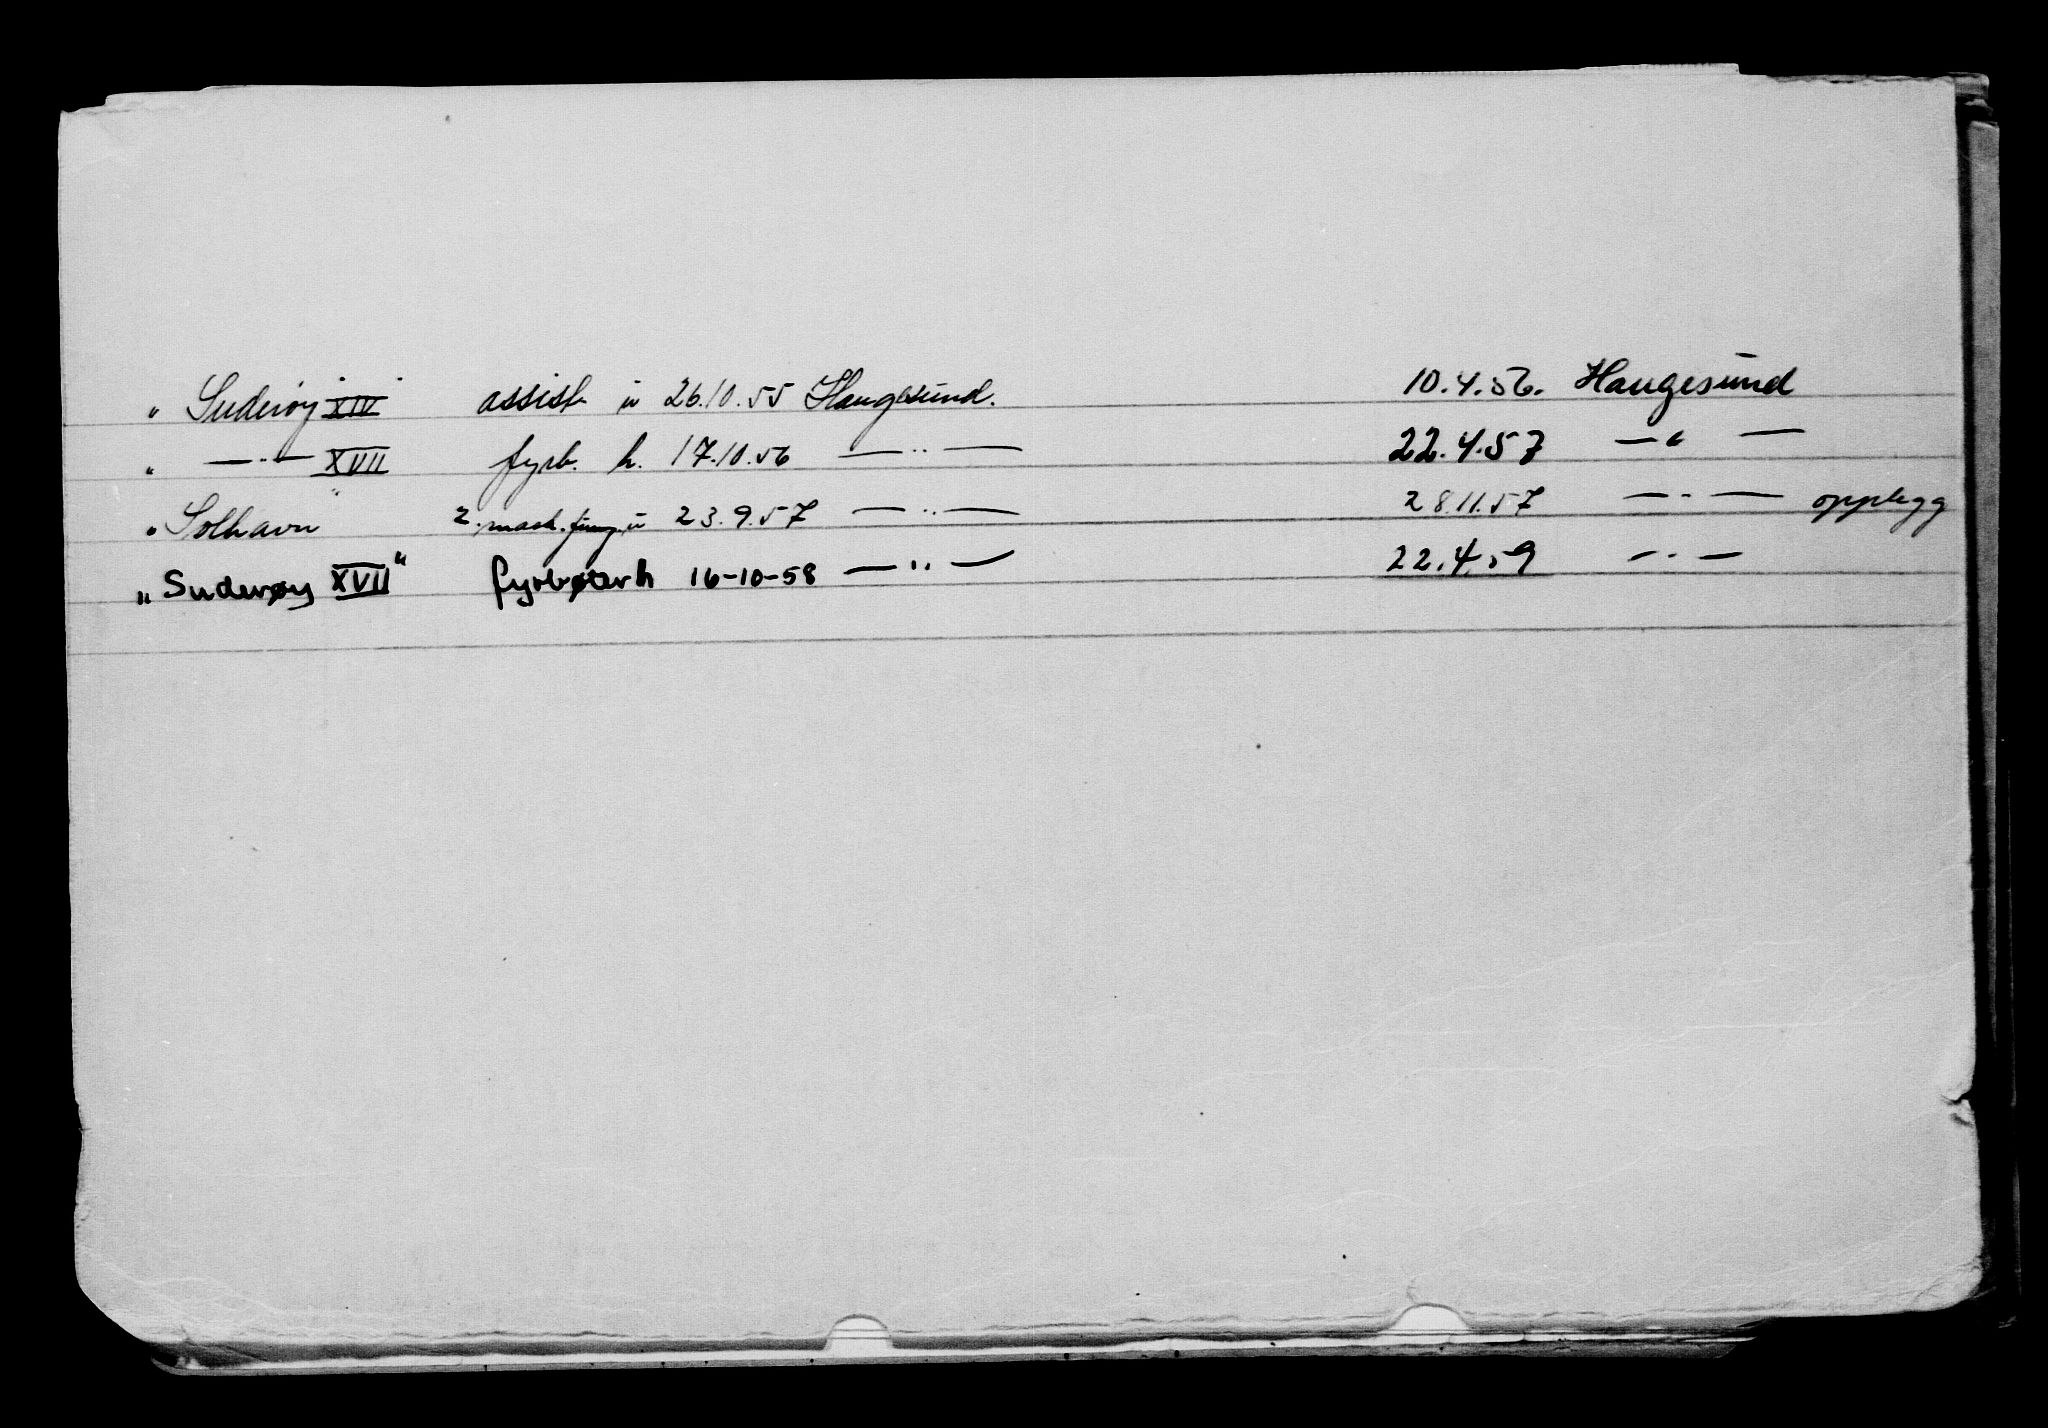 " Suderøy XIV " assist u 26.10.55 Haugesund. 10.4.56. Haugesund
" —"— XVII " fyrb. h. 17.10.56 —"— 22.4.57 —"—
" Solhavn " 2. mask. fung. u 23.9.57 —"— 28.11.57 —"— opplegg
" Suderøy XVII " fyrbøter h 16-10-58 —"— 22.4.59 —"—